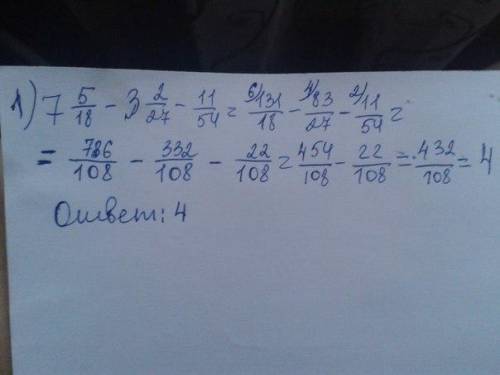 1) 7 5/18 - 3 2/27 - 11/54 = 6/131/18 - 4/83/27 - 2/11/54 =
= 786/108 - 332/108 - 22/108 = 454/108 - 22/108 = 432/108 = 4
Ответ: 4